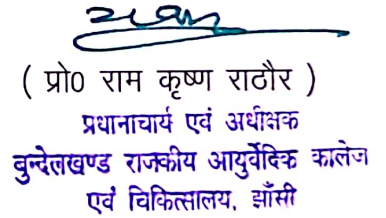 ( प्रो0 राम कृष्ण राठौर )
प्रधानाचार्य एवं अधीक्षक
बुन्देलखण्ड राजकीय आयुर्वेदिक कालेज
एवं चिकित्सालय, झाँसी